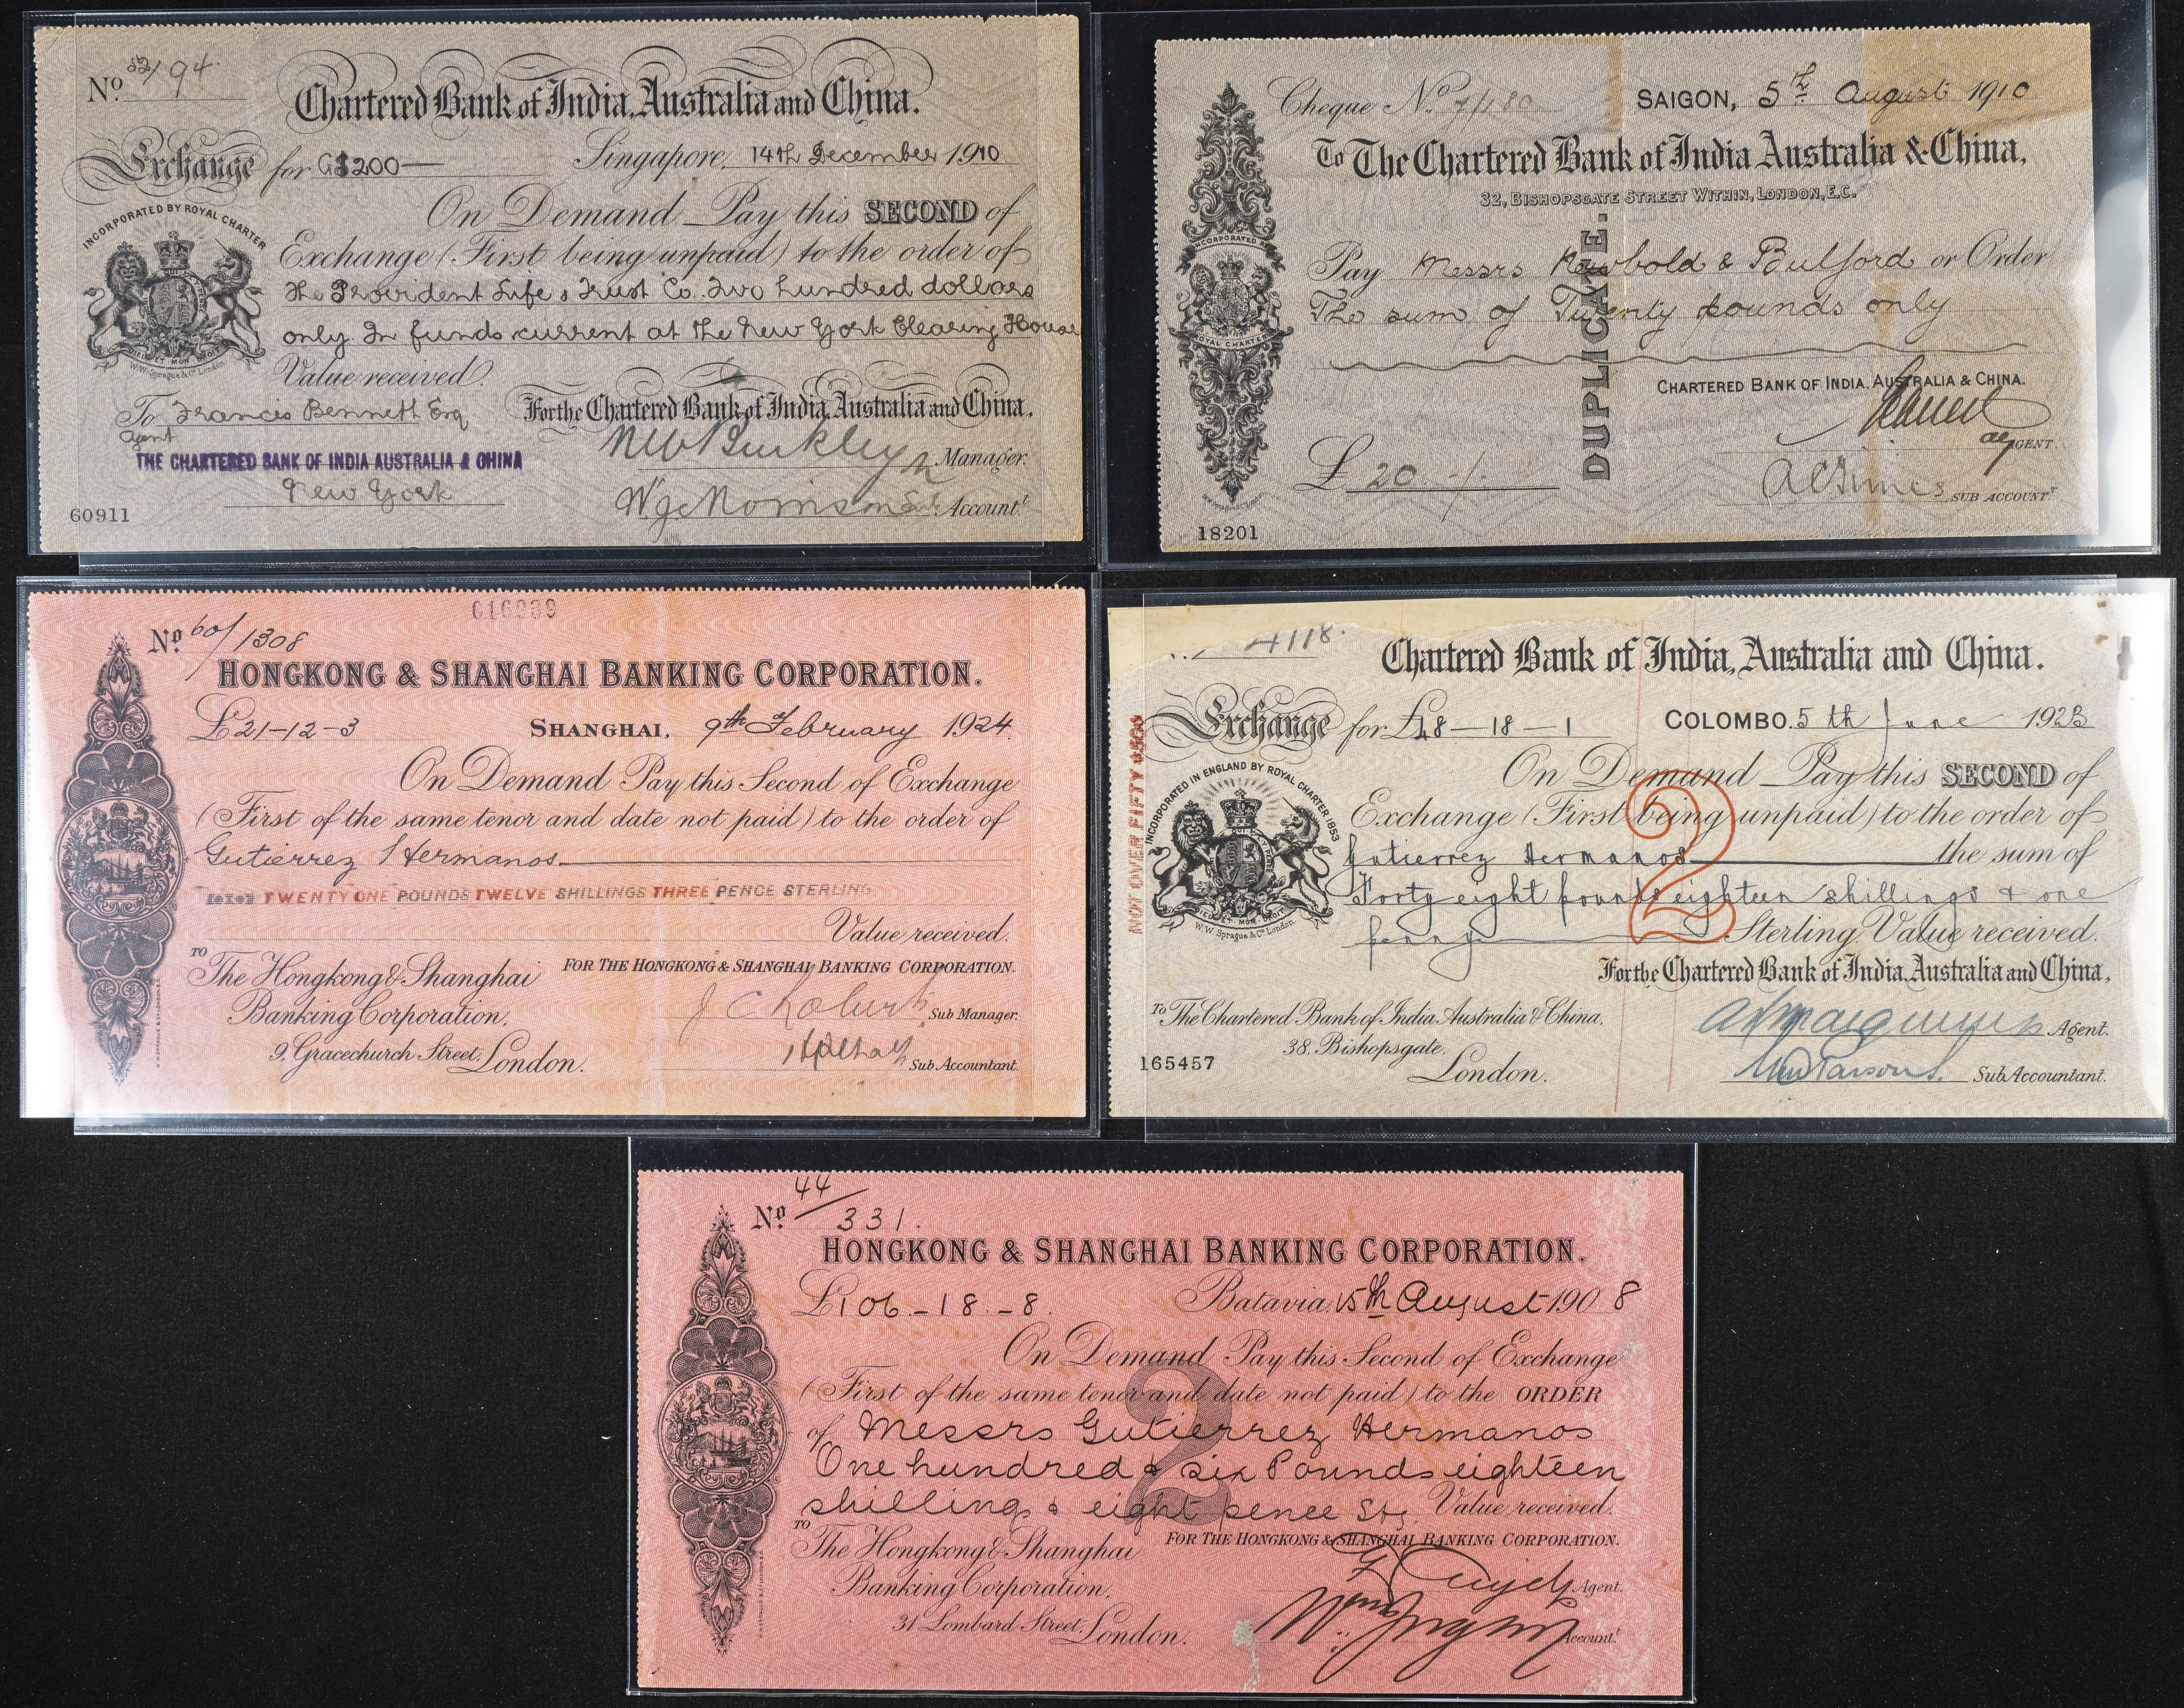 No 52/94
Chartered Bank of India, Australia and China.
Exchange for G$200— Singapore, 14th December 1910
On Demand Pay this SECOND of
Exchange (First being unpaid) to the order of
The Provident Life & Trust Co. Two hundred dollars
only In funds current at the New York Clearing House
Value received.
INCORPORATED BY ROYAL CHARTER
DIEU ET MON DROIT
W.W. Sprague & Co. London.
To Francis Bennett Esq
Agent
THE CHARTERED BANK OF INDIA AUSTRALIA & CHINA
New York
For the Chartered Bank of India, Australia and China.
Manager.
Account.t
60911
Cheque No. 7/180 SAIGON, 5th August 1910
To The Chartered Bank of India Australia & China,
32, BISHOPSGATE STREET WITHIN, LONDON, E.C.
Pay Messrs Newbold & Bulford or Order
The sum of Twenty pounds only
DUPLICATE.
INCORPORATED BY
ROYAL CHARTER
CHARTERED BANK OF INDIA, AUSTRALIA & CHINA.
AGENT.
£ 20 -/-
SUB ACCOUNTT
18201
016939
No 60/1308
HONGKONG & SHANGHAI BANKING CORPORATION.
£21-12-3 SHANGHAI, 9th February 1924.
On Demand Pay this Second of Exchange
(First of the same tenor and date not paid) to the order of
Gutierrez Hermanos
TWENTY ONE POUNDS TWELVE SHILLINGS THREE PENCE STERLING
Value received.
TO
The Hongkong & Shanghai
Banking Corporation,
9, Gracechurch Street, London.
FOR THE HONGKONG & SHANGHAI BANKING CORPORATION.
Sub Manager.
Sub Accountant.
4118.
Chartered Bank of India, Australia and China.
Exchange for £48—18—1 COLOMBO. 5th June 1923
On Demand Pay this SECOND of
Exchange (First being unpaid) to the order of
Gutierrez Hermanos the sum of
Forty eight pounds eighteen shillings & one
penny Sterling Value received.
2
NOT OVER FIFTY £50
INCORPORATED IN ENGLAND BY ROYAL CHARTER 1853
DIEU ET MON DROIT
W.W. Sprague & Co. London.
For the Chartered Bank of India, Australia and China,
To The Chartered Bank of India Australia & China,
38, Bishopsgate,
London.
Agent.
Sub Accountant.
165457
No 44/331.
HONGKONG & SHANGHAI BANKING CORPORATION.
£106.-18.-8. Batavia, 15th August 1908
On Demand Pay this Second of Exchange
(First of the same tenor and date not paid) to the ORDER
of Messrs Gutierrez Hermanos
One hundred & six Pounds eighteen
shillings & eight pence Stg. Value received.
2
TO
The Hongkong & Shanghai
Banking Corporation,
31 Lombard Street, London.
FOR THE HONGKONG & SHANGHAI BANKING CORPORATION.
Agent.
Account.t